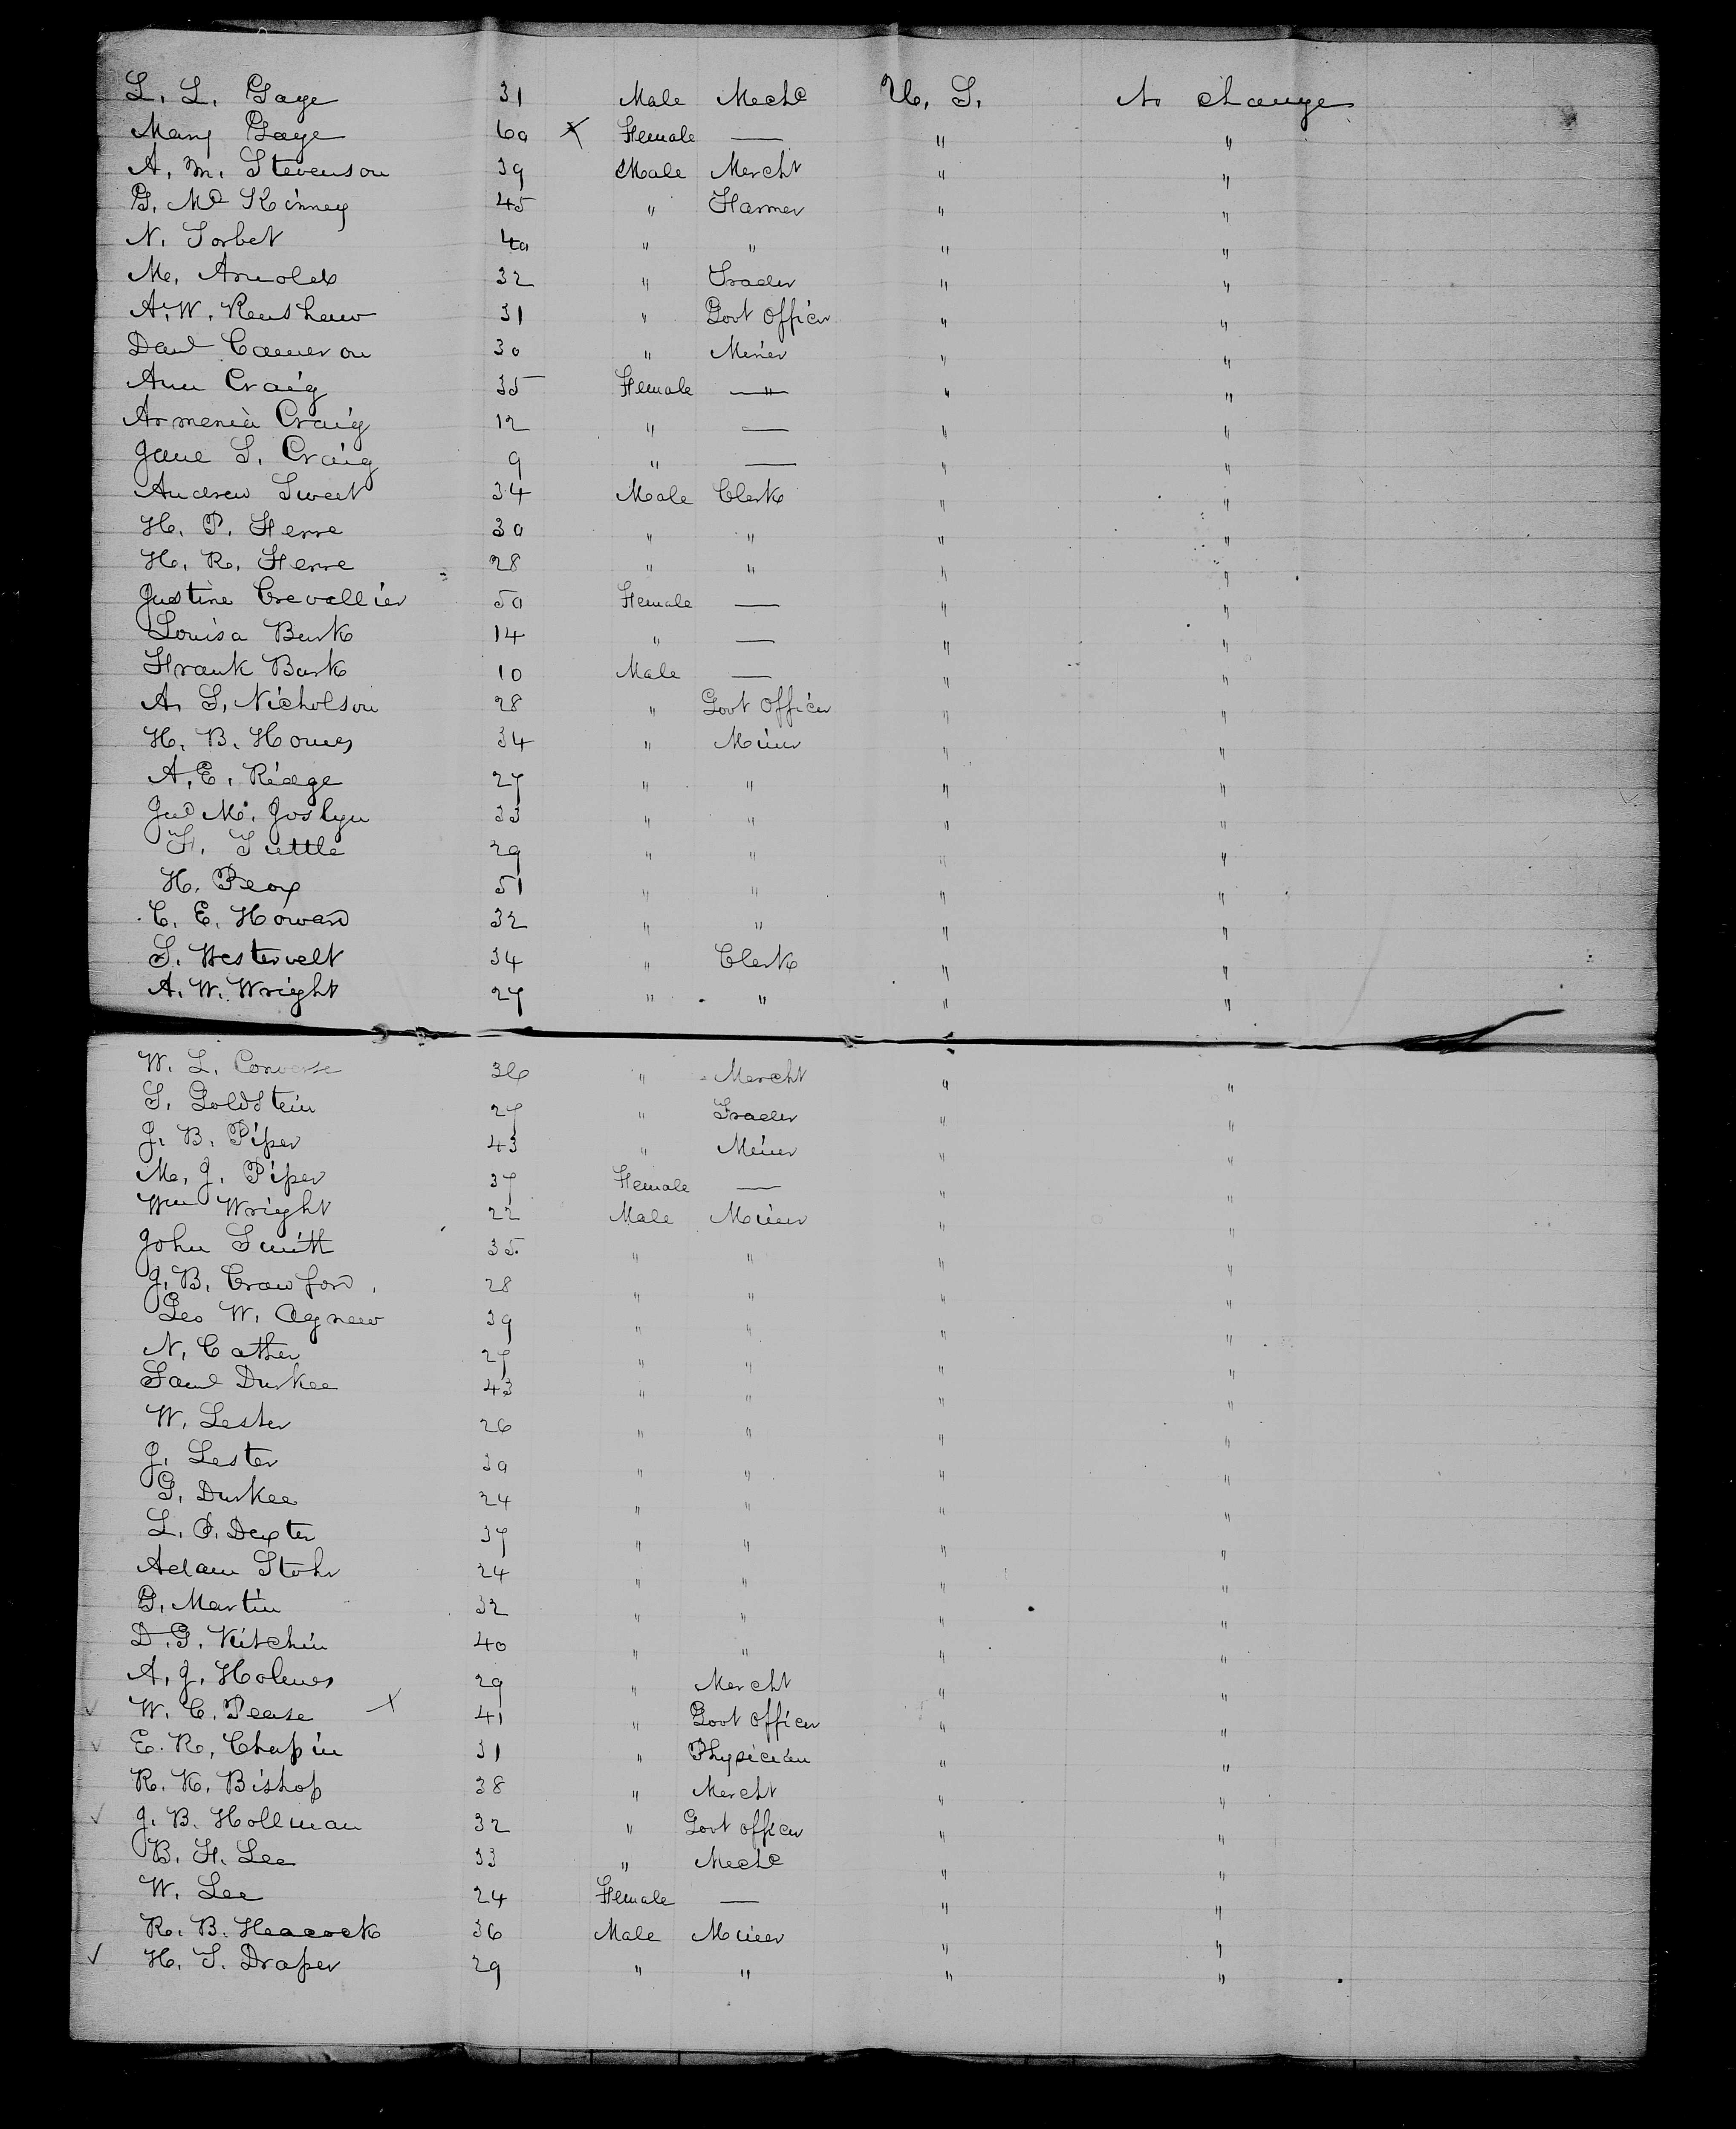 L. L. Gage 31 Male Mechc U. S. No change
Mary Gage 60 x Female — " "
A. M. Stevenson 39 Male Mercht " "
G. Mc Kinney 45 " Farmer " "
N. Torbet 40 " " " "
M. Arnold 32 " Trader " "
A. W. Renshaw 31 " Govt Officer " "
Danl Cameron 30 " Miner " "
Ann Craig 35 Female — " "
Armenia Craig 12 " — " "
Jane S. Craig 9 " — " "
Andrew Sweet 34 Male Clerk " "
H. P. Herre 30 " " " "
H. R. Herre 28 " " " "
Justine Crevallier 50 Female — " "
Louisa Burk 14 " — " "
Frank Burk 10 Male — " "
A. S. Nicholson 28 " Govt Officer " "
H. B. Homes 34 " Miner " "
A. E. Ridge 27 " " " "
Jno M. Joslyn 33 " " " "
H. Tuttle 29 " " " "
H. Peox 51 " " " "
C. E. Howard 32 " " " "
S. Westervelt 34 " Clerk " "
A. W. Wright 27 " " " "
W. L. Converse 36 " Mercht " "
S. Goldstein 27 " Trader " "
J. B. Piper 43 " Miner " "
M. J. Piper 37 Female — " "
Wm Wright 22 Male Miner " "
John Smith 35 " " " "
J. B. Crawford 28 " " " "
Geo W. Agnew 39 " " " "
N. Cather 27 " " " "
Saml Durkee 43 " " " "
W. Lester 26 " " " "
J. Lester 30 " " " "
G. Durkee 24 " " " "
L. P. Dexter 37 " " " "
Adam Stohr 24 " " " "
G. Martin 32 " " " "
D. G. Kitchin 40 " " " "
A. J. Holmes 29 " Mercht " "
✓ W. C. Pease x 41 " Govt Officer " "
✓ E. R. Chapin 31 " Physician " "
R. K. Bishop 38 " Mercht " "
✓ J. B. Hollman 32 " Govt officer " "
B. F. Lee 33 " Mechc " "
W. Lee 24 Female — " "
R. B. Heacock 36 Male Miner " "
✓ H. S. Draper 29 " " " "